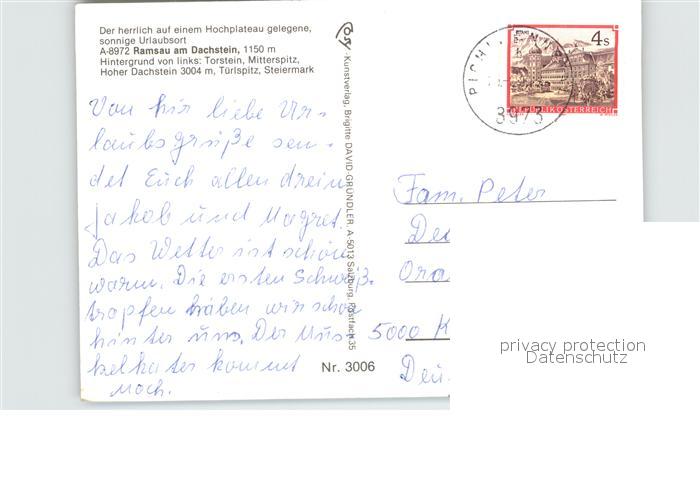 Der herrlich auf einem Hochplateau gelegene,
sonnige Urlaubsort
A-8972 Ramsau am Dachstein, 1150 m
Hintergrund von links: Torstein, Mitterspitz,
Hoher Dachstein 3004 m, Türlspitz, Steiermark
Von hir liebe Ur-
laubsgrüße sen-
det Euch allen dreien
Jakob und Magret.
Das Wetter ist schön
warm. Die ersten Schweiß
tropfen haben wir schon
hinter uns. Der Mus-
kelkater kommt
noch.
Cosy
Kunstverlag, Brigitte DAVID-GRÜNDLER, A-5013 Salzburg, Postfach 35
Nr. 3006
4s
REPUBLIK ÖSTERREICH
8973
Fam. Peter
Ora
5000 K
privacy protection
Datenschutz